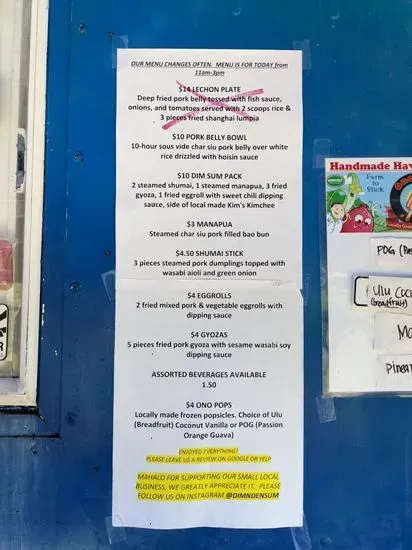 OUR MENU CHANGES OFTEN. MENU IS FOR TODAY from
11am-3pm
$14 LECHON PLATE
Deep fried pork belly tossed with fish sauce,
onions, and tomatoes served with 2 scoops rice &
3 pieces fried shanghai lumpia
$10 PORK BELLY BOWL
10-hour sous vide char siu pork belly over white
rice drizzled with hoisin sauce
$10 DIM SUM PACK
2 steamed shumai, 1 steamed manapua, 3 fried
gyoza, 1 fried eggroll with sweet chili dipping
sauce, side of local made Kim's Kimchee
$3 MANAPUA
Steamed char siu pork filled bao bun
$4.50 SHUMAI STICK
3 pieces steamed pork dumplings topped with
wasabi aioli and green onion
$4 EGGROLLS
2 fried mixed pork & vegetable eggrolls with
dipping sauce
$4 GYOZAS
5 pieces fried pork gyoza with sesame wasabi soy
dipping sauce
ASSORTED BEVERAGES AVAILABLE
1.50
$4 ONO POPS
Locally made frozen popsicles. Choice of Ulu
(Breadfruit) Coconut Vanilla or POG (Passion
Orange Guava)
ENJOYED EVERYTHING?
PLEASE LEAVE US A REVIEW ON GOOGLE OR YELP
MAHALO FOR SUPPORTING OUR SMALL LOCAL
BUSINESS, WE GREATLY APPRECIATE IT. PLEASE
FOLLOW US ON INSTAGRAM @DIMNDENSUM
Handmade Ha
Farm
to
POG (Pas
Ulu Coco
(Breadfruit)
Pinea